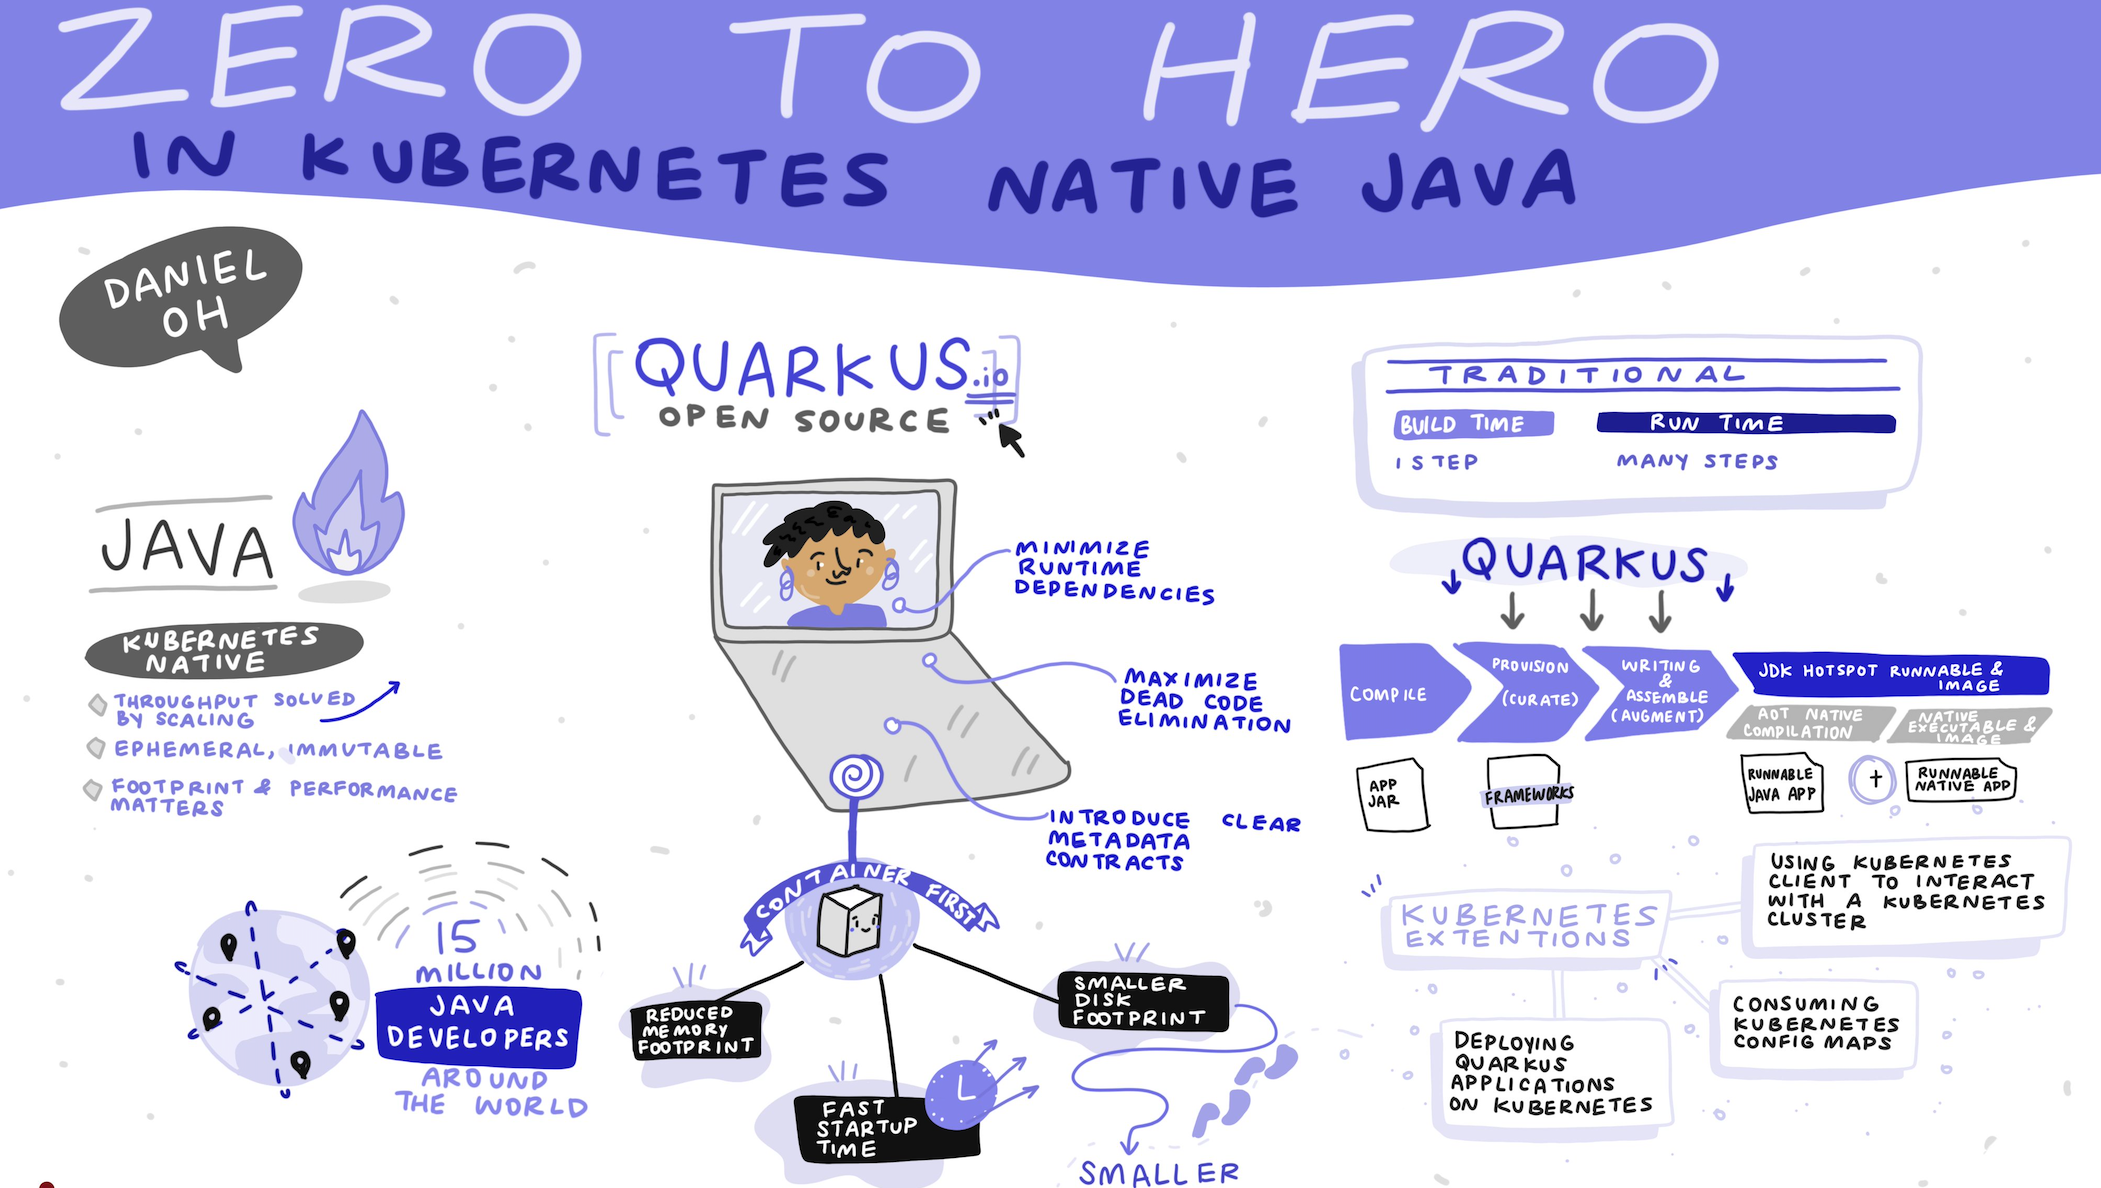 ZERO TO HERO
IN KUBERNETES NATIVE JAVA
DANIEL
OH
JAVA
KUBERNETES
NATIVE
THROUGHPUT SOLVED
BY SCALING
EPHEMERAL, IMMUTABLE
FOOTPRINT & PERFORMANCE
MATTERS
15
MILLION
JAVA
DEVELOPERS
AROUND
THE WORLD
QUARKUS.io
OPEN SOURCE
MINIMIZE
RUNTIME
DEPENDENCIES
MAXIMIZE
DEAD CODE
ELIMINATION
INTRODUCE CLEAR
METADATA
CONTRACTS
CONTAINER FIRST
REDUCED
MEMORY
FOOTPRINT
FAST
STARTUP
TIME
SMALLER
DISK
FOOTPRINT
SMALLER
TRADITIONAL
BUILD TIME
RUN TIME
1 STEP
MANY STEPS
QUARKUS
COMPILE
PROVISION
(CURATE)
WRITING
&
ASSEMBLE
(AUGMENT)
JDK HOTSPOT RUNNABLE &
IMAGE
AOT NATIVE
COMPILATION
NATIVE
EXECUTABLE &
IMAGE
APP
JAR
FRAMEWORKS
RUNNABLE
JAVA APP
+
RUNNABLE
NATIVE APP
KUBERNETES
EXTENTIONS
USING KUBERNETES
CLIENT TO INTERACT
WITH A KUBERNETES
CLUSTER
CONSUMING
KUBERNETES
CONFIG MAPS
DEPLOYING
QUARKUS
APPLICATIONS
ON KUBERNETES